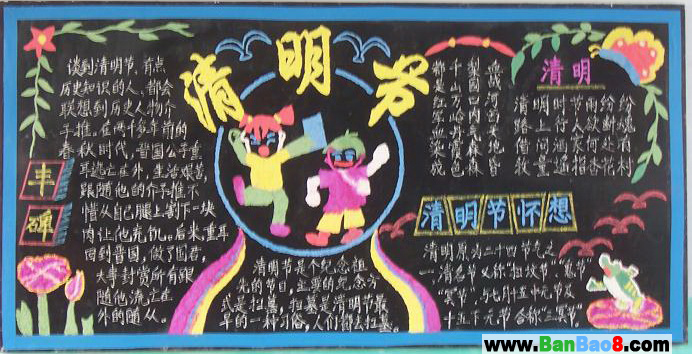 清明节
谈到清明节，有点
历史知识的人，都会
联想到历史人物介
子推。在两千多年前的
春秋时代，晋国公子重
耳逃亡在外，生活艰苦，
跟随他的介子推不
惜从自己腿上割下一块
肉让他充饥。后来，重耳
回到晋国，做了国君，
大事封赏所有跟
随他流亡在
外的随从。
丰
碑
清明节是个纪念祖
先的节日，主要的纪念方
式是扫墓，扫墓是清明节最
早的一种习俗，人们都去扫墓。
血战河西
梨园四内
千山万岭
都是红军血染成
清明
清明时节雨纷纷
路上行人欲断魂
借问酒家何处有
牧童遥指杏花村
清明节怀想
清明原为二十四节气之
一，清名节又称"扫坟节"、"鬼节"
"冥节"，与七月十五中元节及
十五下元节合称"三冥节"。
www.BanBao8.com